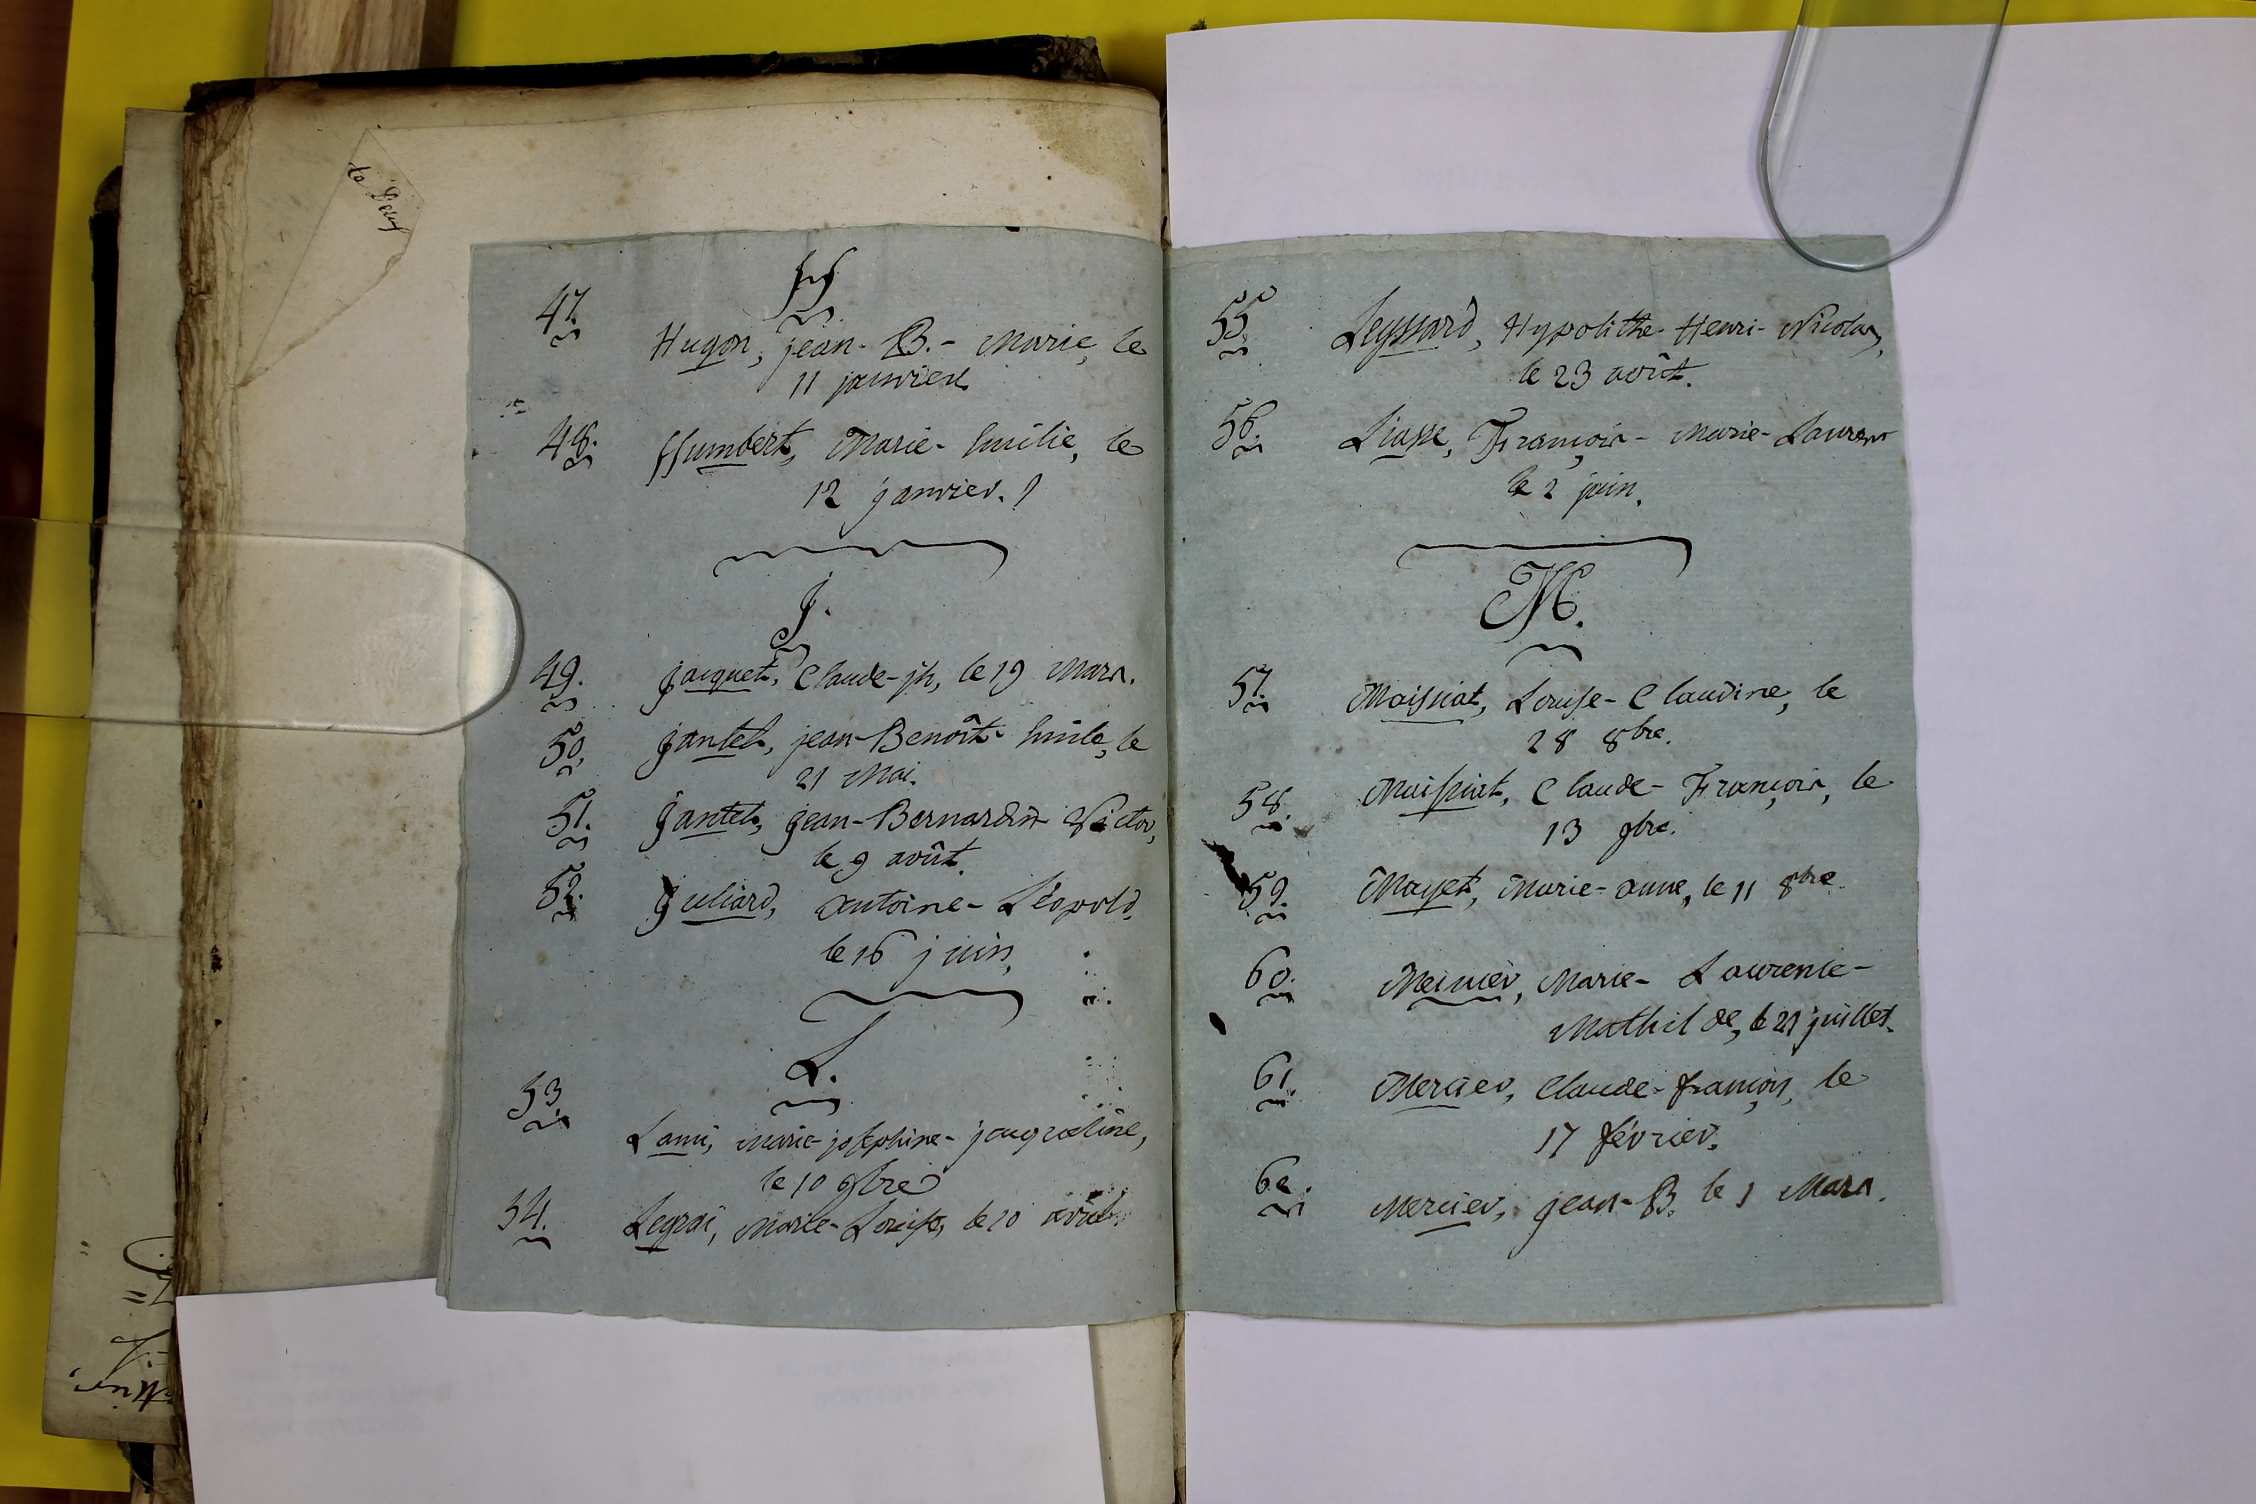 H.
47. Hugon, jean-B.-Marie, le
11 janvier
48. Humbert, Marie-Emilie, le
12 janvier.
J.
49. Jacquet, Claude-jh, le 19 Mars.
50. Jantet, jean-Benoît-Emile, le
21 Mai.
51. Jantet, jean-Bernardin-Victor,
le 9 août.
52. Juliard, Antoine-Léopold,
le 16 juin,
L.
53. Lami, Marie-joséphine-jacqueline,
le 10 9bre
54. Legrai, Marie-Louise, le 20 avril.
55. Leyssard, Hypolithe-Henri-Nicolas,
le 23 août.
56. Liasse, François-Marie-Laurent
le 2 juin.
M.
57. Maissiat, Louise-Claudine, le
28 8bre.
58. Maissiat, Claude-François, le
13 9bre.
59. Mayet, Marie-anne, le 11 8bre.
60. Meinier, Marie-Laurence-
Mathilde, le 21 juillet.
61. Mercier, Claude-françois, le
17 février.
62. Mercier, jean-B. le 1 Mars.